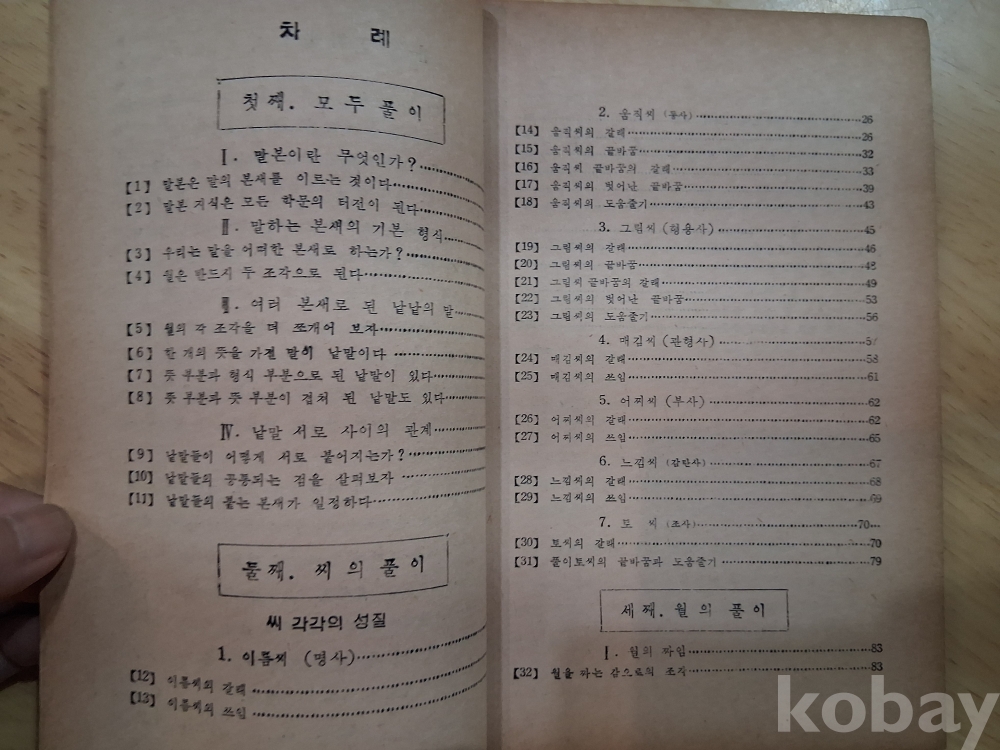 차 례
첫째. 모두풀이
Ⅰ. 말본이란 무엇인가?
[1] 말본은 말의 본새를 이르는 것이다
[2] 말본 지식은 모든 학문의 터전이 된다
Ⅱ. 말하는 본새의 기본 형식
[3] 우리는 말을 어떠한 본새로 하는가?
[4] 월은 반드시 두 조각으로 된다
Ⅲ. 여러 본새로 된 낱낱의 말
[5] 월의 각 조각을 더 쪼개어 보자
[6] 한 개의 뜻을 가진 말이 낱말이다
[7] 뜻 부분과 형식 부분으로 된 낱말이 있다
[8] 뜻 부분과 뜻 부분이 겹쳐 된 낱말도 있다
Ⅳ. 낱말 서로 사이의 관계
[9] 낱말들이 어떻게 서로 붙어지는가?
[10] 낱말들의 공통되는 점을 살펴보자
[11] 낱말들의 붙는 본새가 일정하다
둘째. 씨의 풀이
씨 각각의 성질
1. 이름씨 (명사)
[12] 이름씨의 갈래
[13] 이름씨의 쓰임
2. 움직씨 (동사) 26
[14] 움직씨의 갈래 26
[15] 움직씨의 끝바꿈 32
[16] 움직씨 끝바꿈의 갈래 33
[17] 움직씨의 벗어난 끝바꿈 39
[18] 움직씨의 도움줄기 43
3. 그림씨 (형용사) 45
[19] 그림씨의 갈래 46
[20] 그림씨의 끝바꿈 48
[21] 그림씨 끝바꿈의 갈래 49
[22] 그림씨의 벗어난 끝바꿈 53
[23] 그림씨의 도움줄기 56
4. 매김씨 (관형사) 57
[24] 매김씨의 갈래 58
[25] 매김씨의 쓰임 61
5. 어찌씨 (부사) 62
[26] 어찌씨의 갈래 62
[27] 어찌씨의 쓰임 65
6. 느낌씨 (감탄사) 67
[28] 느낌씨의 갈래 68
[29] 느낌씨의 쓰임 69
7. 토 씨 (조사) 70
[30] 토씨의 갈래 70
[31] 풀이토씨의 끝바꿈과 도움줄기 79
세째. 월의 풀이
Ⅰ. 월의 짜임 83
[32] 월을 짜는 감으로의 조각 83
kobay